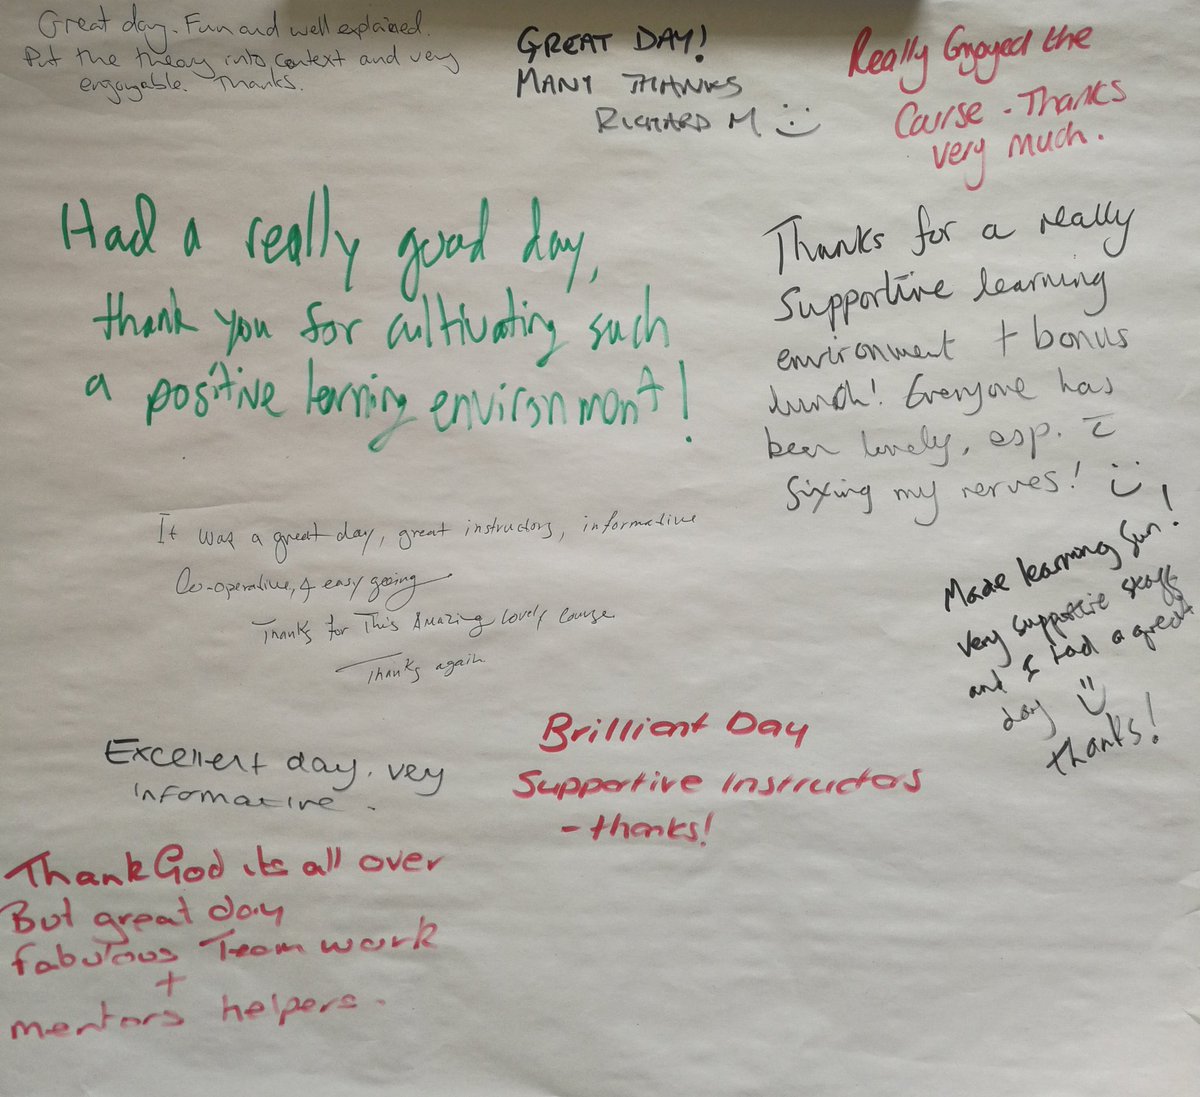 Great day. Fun and well explained.
Put the theory into context and very
engoyable. Thanks.
GREAT DAY!
MANY THANKS
RICHARD M
Really Enjoyed the
Course - Thanks
very much.
Had a really good day,
thank you for cultivating such
a positive learning environment!
Thanks for a really
supportive learning
environment + bonus
lunch! Everyone has
been lovely, esp. c̄
fixing my nerves!
It was a great day, great instructors, informative
Co-operative, & easy going
Thanks for This Amazing Lovely Course.
Thanks again.
Made learning fun!
very supportive staff
and I had a great
day
thanks!
Excellent day. very
informative.
Brillient Day
Supportive Instructors
- thanks!
Thank God its all over
But great day
fabulous Team work
+
mentors helpers.